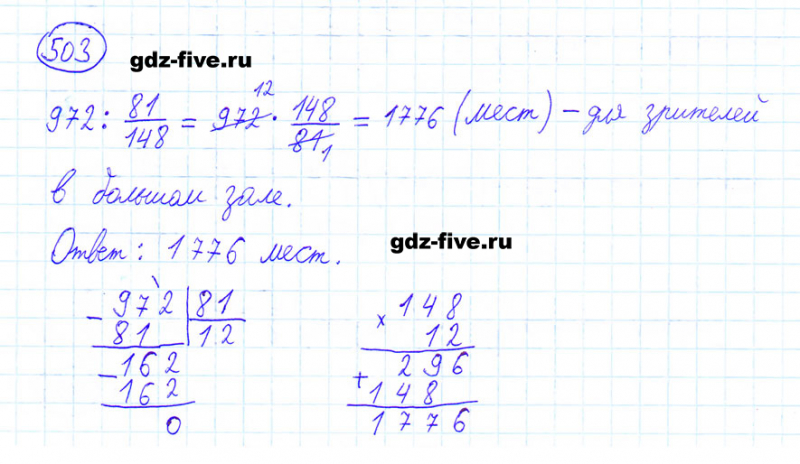 503
gdz-five.ru
972 : 81/148 = 972 12 · 148/81 1 = 1776 (мест) – для зрителей
в большом зале.
Ответ: 1776 мест.
gdz-five.ru
- 972 | 81
81 | 12
- 162
162
0
× 148
12
296
+ 148
1776